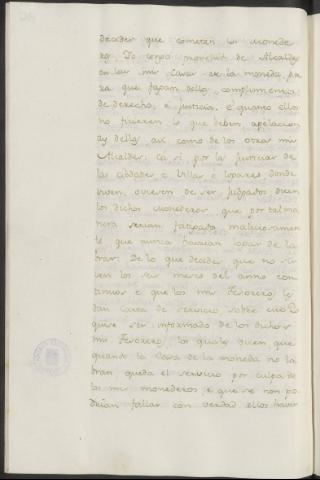 decides que cometen los monede
ros. Yo tengo proveido de Alcaldes
en las mis Casas de la moneda, pa
ra que fagan dello complimiento
de derecho, e justicia, e quando ellos
no ficieren lo que deben, apelacion
ay dellos, asi como de los otros mis
Alcaldes. Ca si por las justicias de
las cibdades e Villas e logares, donde
viven, oviesen de ser judgados dicen
los dichos monederos, que por tal ma
nera serian fatigados maliciosamen
te que nunca farian logar de la
brar: De lo que decides que no sir
ven los seis meses del anno con
tinuos e que los mis Tesoreros les
dan carta de servicio sobre ello Yo
quise ser informado de los dichos
mis Tesoreros, los quales dicen que
quando la Casa de la moneda no la
bran queda el servicio por culpa de
los mis monederos, e que se non po
drian fallar con verdad ellos haver